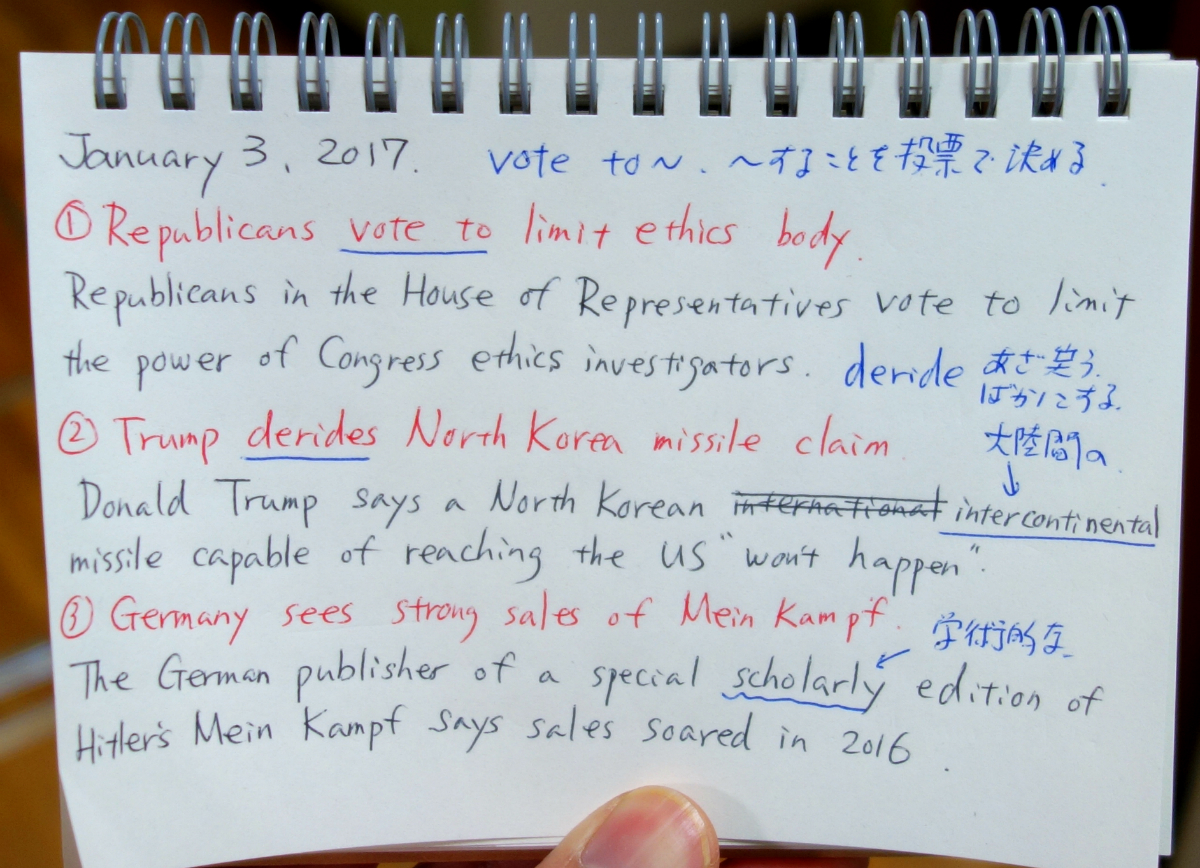 January 3, 2017. vote to~. ~することを投票で決める.
① Republicans vote to limit ethics body.
Republicans in the House of Representatives vote to limit
the power of Congress ethics investigators. deride あざ笑う.
ばかにする.
② Trump derides North Korea missile claim
大陸間の
↓
Donald Trump says a North Korean international intercontinental
missile capable of reaching the US "won't happen".
③ Germany sees strong sales of Mein Kampf.
学術的な
The German publisher of a special scholarly edition of
Hitler's Mein Kampf says sales soared in 2016.